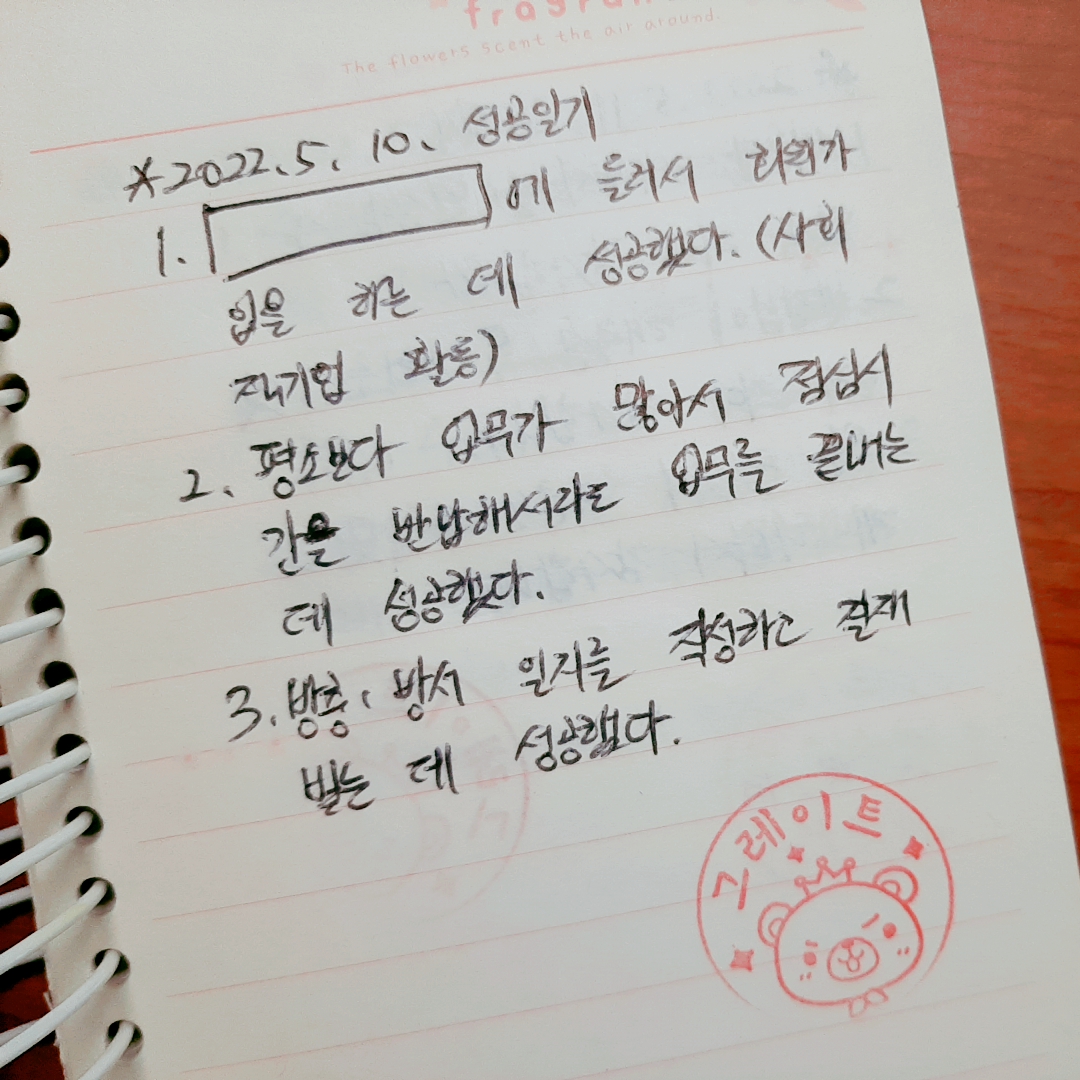 fragran
The flowers scent the air around.
*2022.5.10. 성공일기
1. 에 들러서 회원가
입을 하는 데 성공했다. (사회
적기업 활동)
2. 평소보다 업무가 많아서 점심시
간을 반납해서라도 업무를 끝내는
데 성공했다.
3. 방충, 방서 일지를 작성하고 결재
받는 데 성공했다.
그레이트